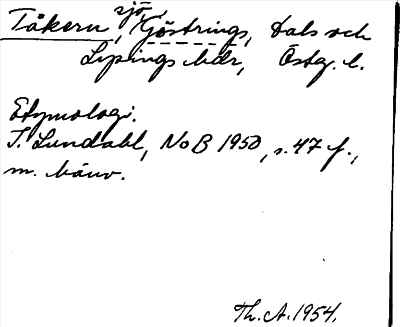 Tåkern, sjö, Göstrings, Dals och
Lysings hdr, Östg. l.
Etymologi.
I. Lundahl, NoB 1950, s. 47 f.,
m. hänv.
Th. A. 1954.